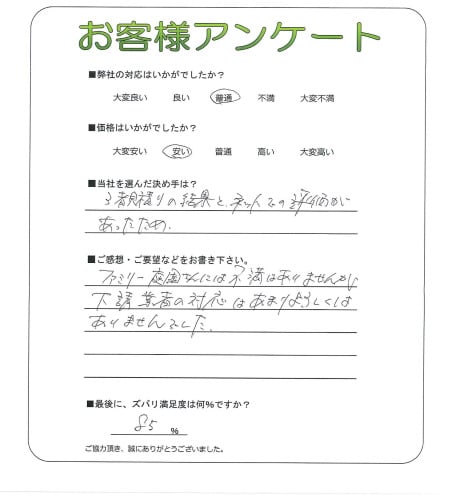 お客様アンケート
■弊社の対応はいかがでしたか？
大変良い 良い 普通 不満 大変不満
■価格はいかがでしたか？
大変安い 安い 普通 高い 大変高い
■当社を選んだ決め手は？
3者見積りの結果と、ネットでの評価が
あったため。
■ご感想・ご要望などをお書き下さい。
ファミリー庭園さんには不満はありませんが、
下請業者の対応はあまりよろしくは
ありませんでした。
■最後に、ズバリ満足度は何％ですか？
85 ％
ご協力頂き、誠にありがとうございました。